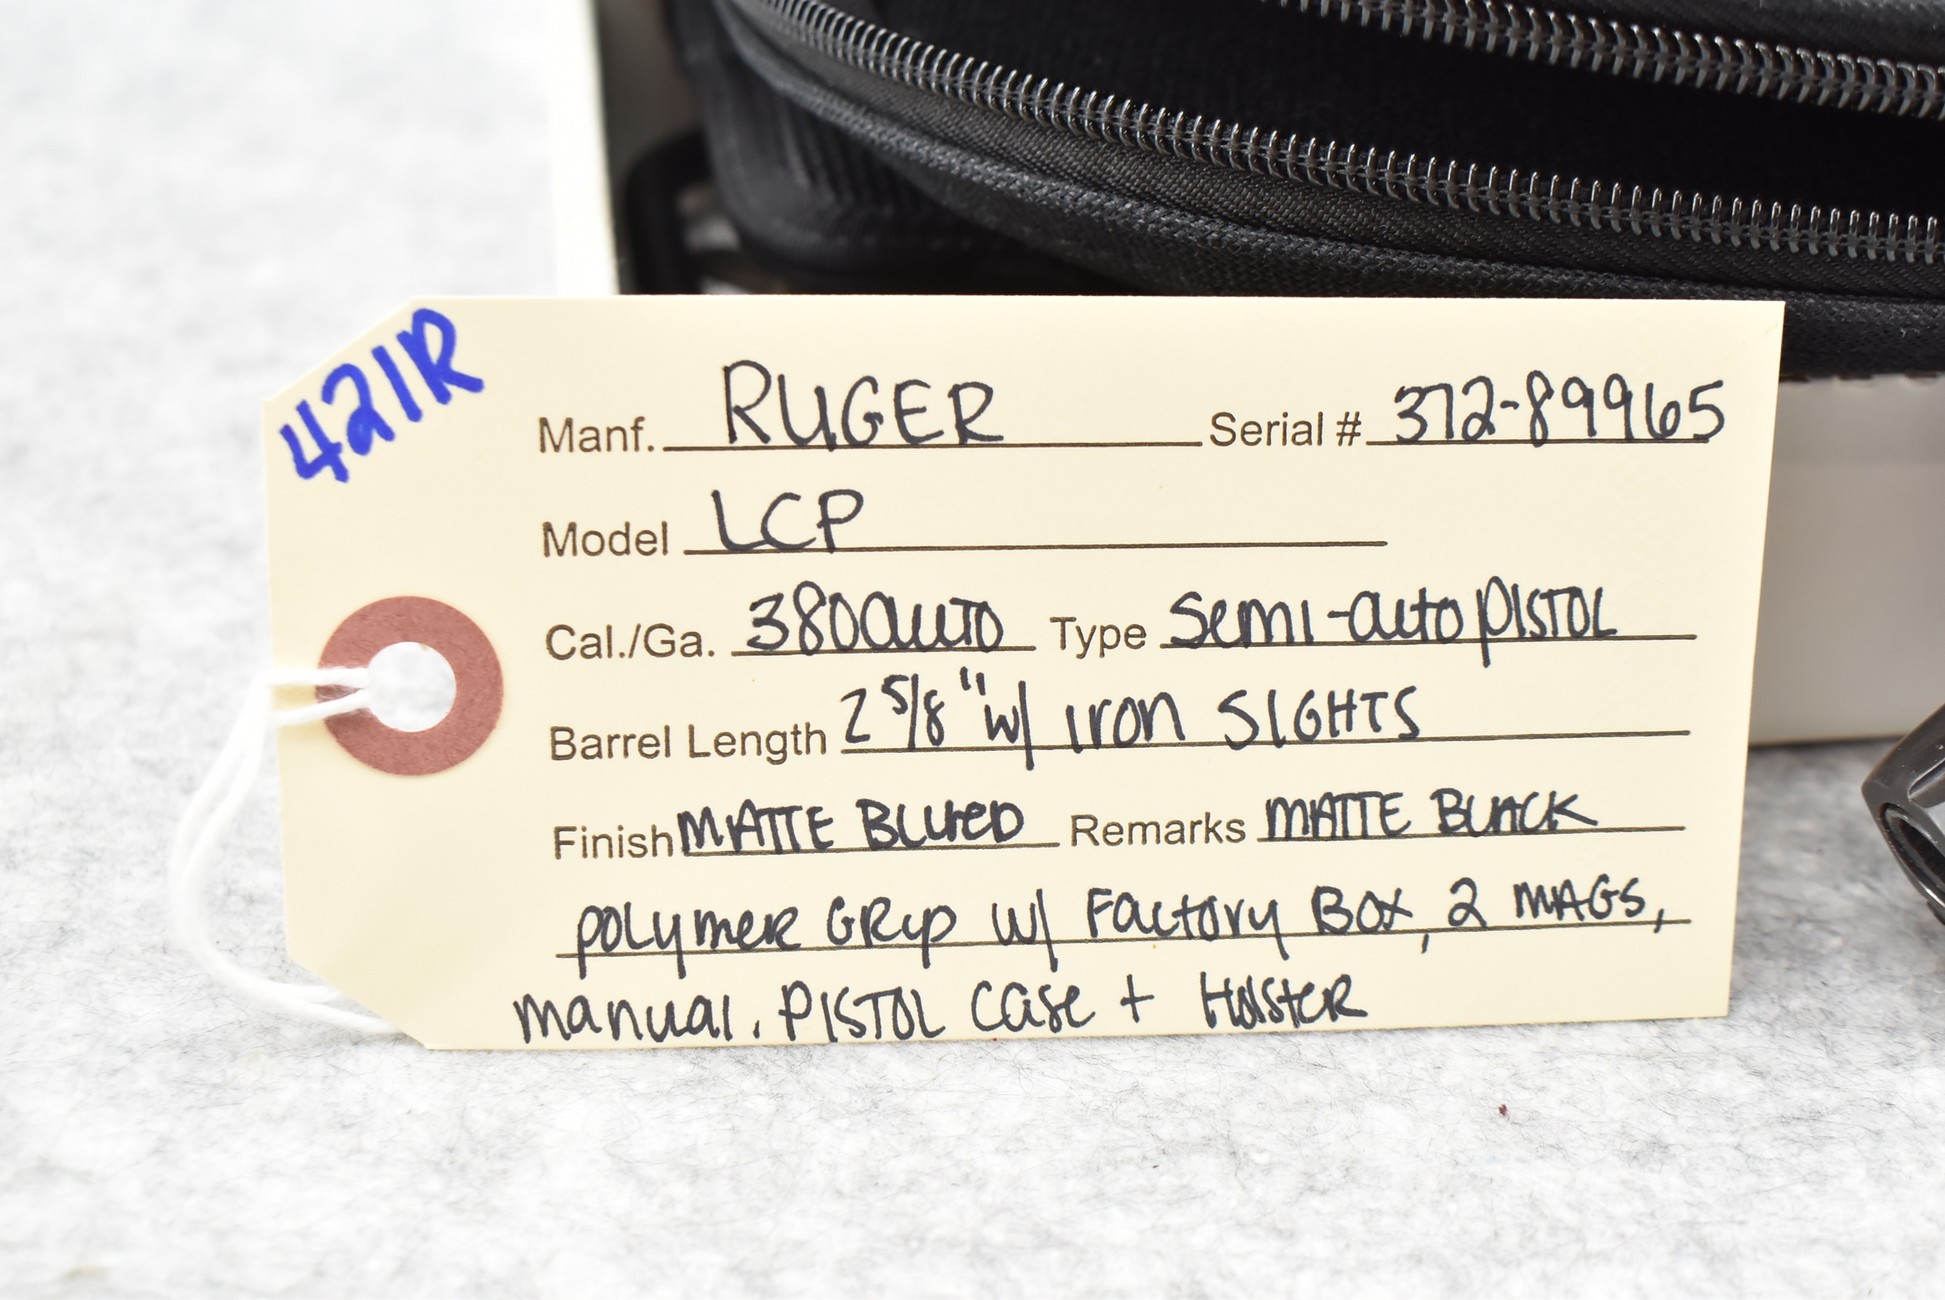 421R
Manf. RUGER Serial # 372-89965
Model LCP
Cal./Ga. 380auto Type Semi-auto PISTOL
Barrel Length 2 5/8" w/ Iron SIGHTS
Finish MATTE BLUED Remarks MATTE BLACK
polymer GRIP w/ Factory Box, 2 MAGS,
manual, PISTOL case + Holster